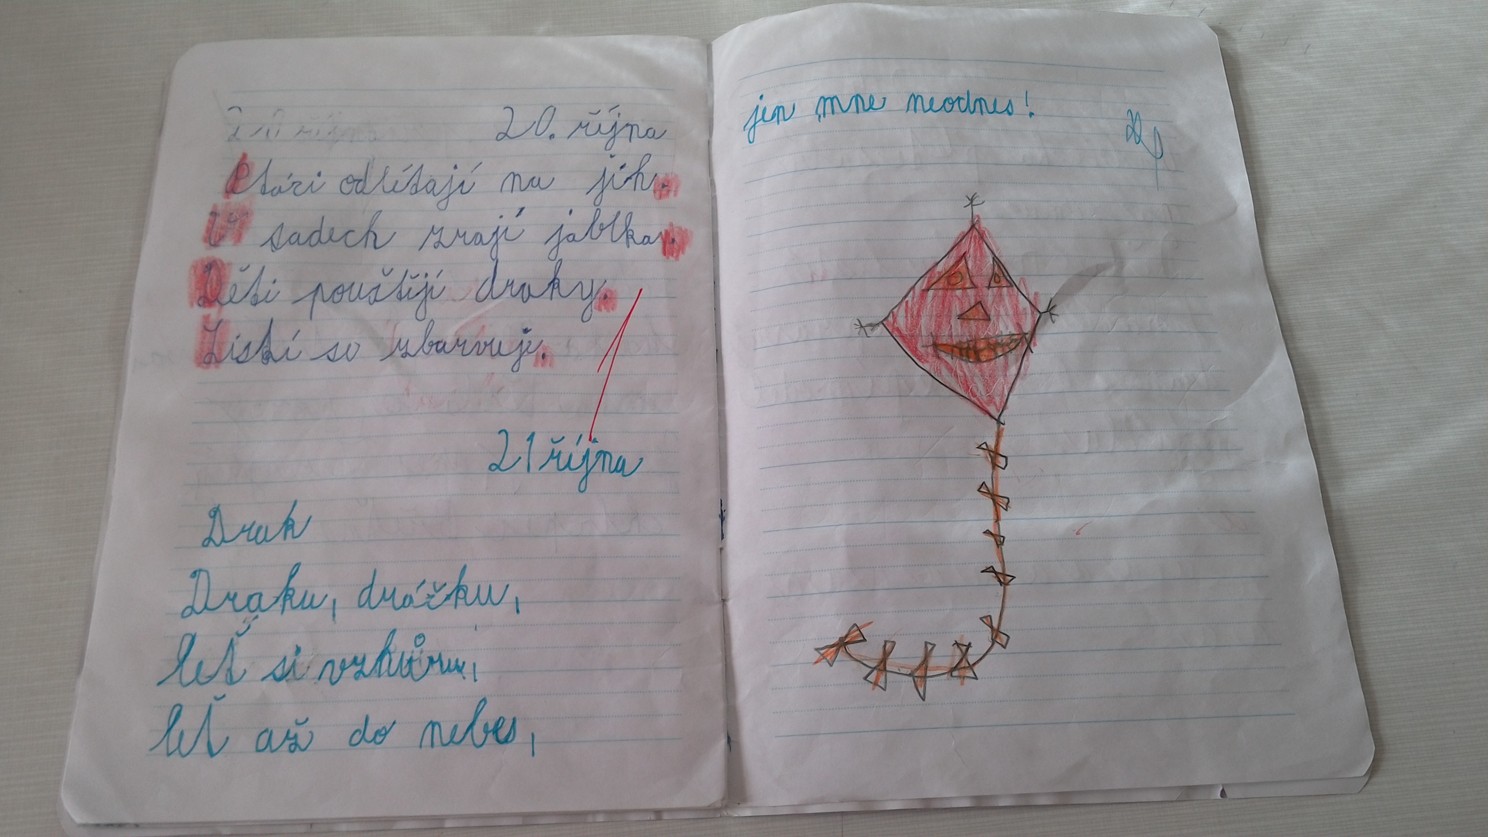 20. října
Ptáci odlétají na jih.
V sadech zrají jablka.
Děti pouštějí draky.
Listí se zbarvuje.
21 října
Drak
Draku, dráčku,
leť si vzhůru,
leť až do nebes,
jen mne neodnes!